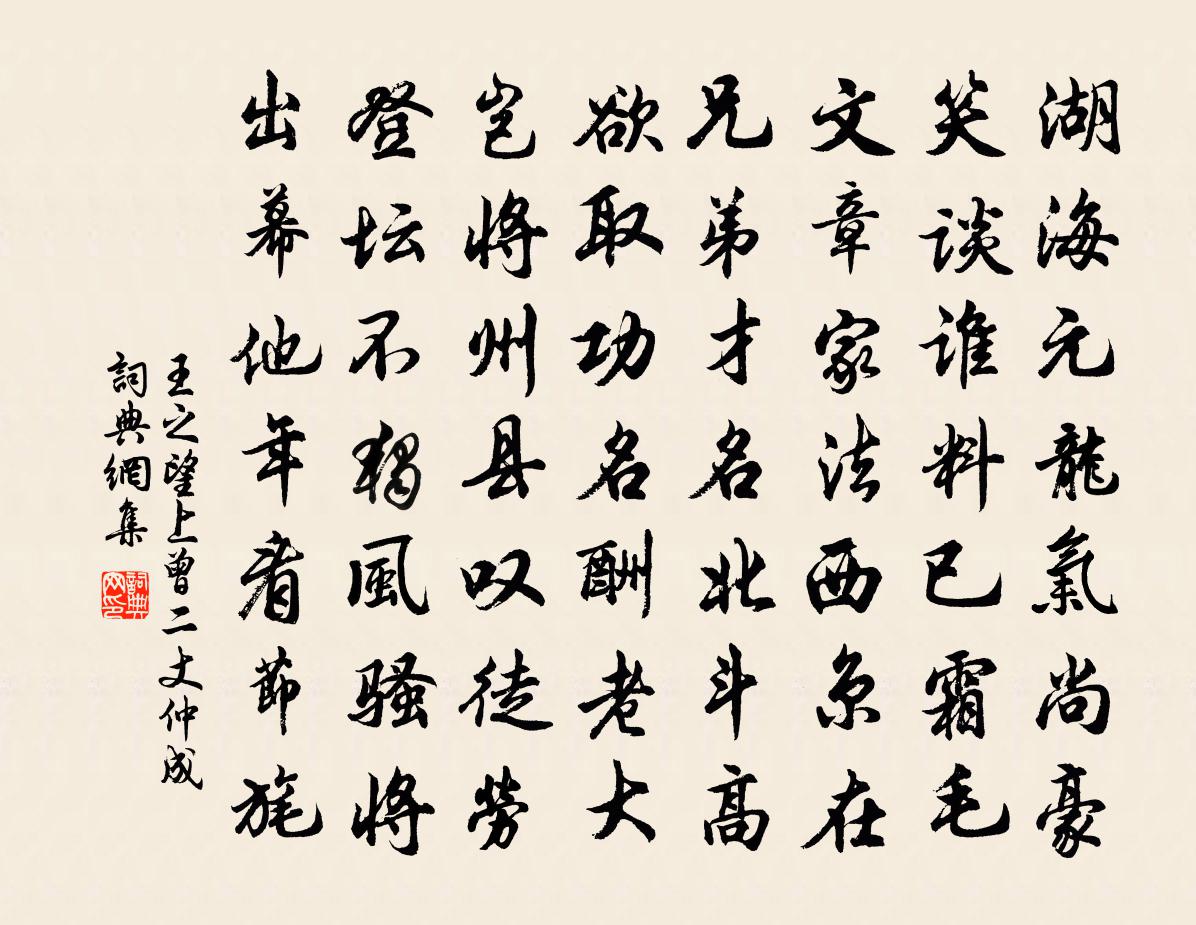 湖海元龍氣尚豪
笑談谁料已霜毛
文章家法西京在
兄弟才名北斗高
欲取功名酬老大
岂将州县叹徒勞
登坛不独風骚将
出幕他年看節旄
王之望上曾二丈仲成
詞典網集
詞典网印